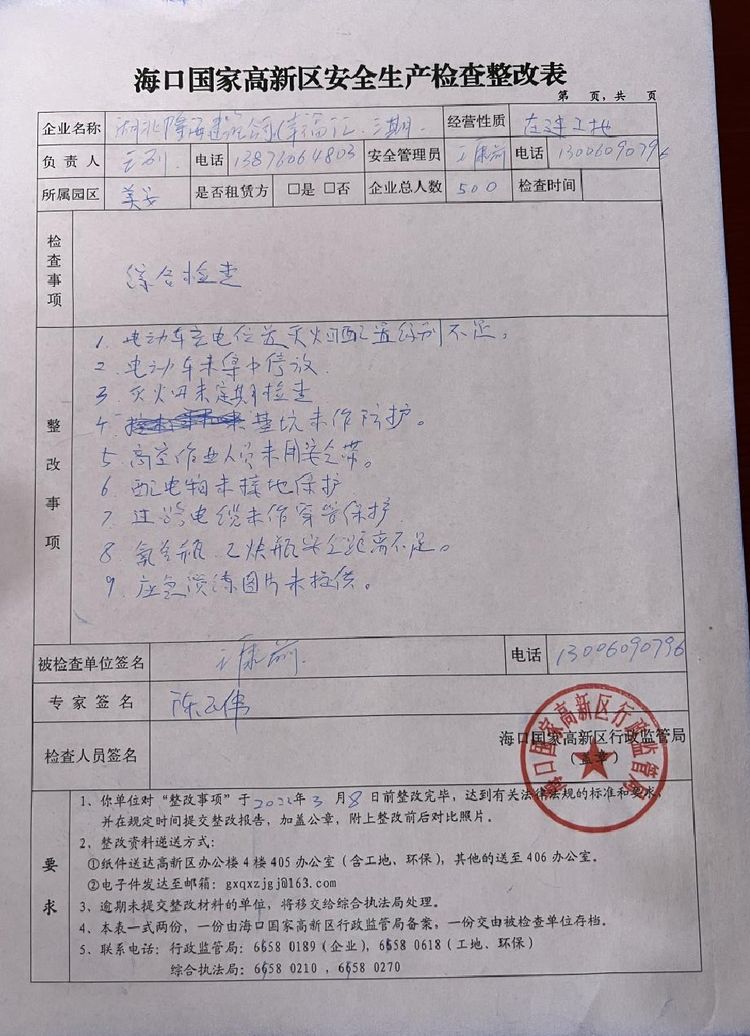 海口国家高新区安全生产检查整改表
第 页,共 页
企业名称 湖北 海建 三期 经营性质 在建工地
负责人 电话 13876064803 安全管理员 王康前 电话 13006090796
所属园区 美安 是否租赁方 □是 □否 企业总人数 500 检查时间
检查事项
综合检查
整改事项
1. 电动车充电位置灭火器配置级别不足。
2. 电动车未集中停放
3. 灭火器未定期检查
4. 基坑未作防护。
5. 高空作业人员未用安全带。
6. 配电箱未接地保护
7. 过路电缆未作穿管保护
8. 氧气瓶、乙炔瓶安全距离不足。
9. 应急演练图片未提供。
被检查单位签名 王康前 电话 13006090796
专家签名 陈 伟
检查人员签名
海口国家高新区行政监管局
(盖章)
海口国家高新区行政监管局
要求
1、你单位对“整改事项”于2022年3月8日前整改完毕,达到有关法律法规的标准和要求,
并在规定时间提交整改报告,加盖公章,附上整改前后对比照片。
2、整改资料递送方式:
①纸件送达高新区办公楼4楼405办公室(含工地、环保),其他的送至406办公室。
②电子件发达至邮箱:gxqxzjgj@163.com
3、逾期未提交整改材料的单位,将移交给综合执法局处理。
4、本表一式两份,一份由海口国家高新区行政监管局备案,一份交由被检查单位存档。
5、联系电话:行政监管局:6658 0189(企业),6658 0618(工地、环保)
综合执法局:6658 0210 ,6658 0270